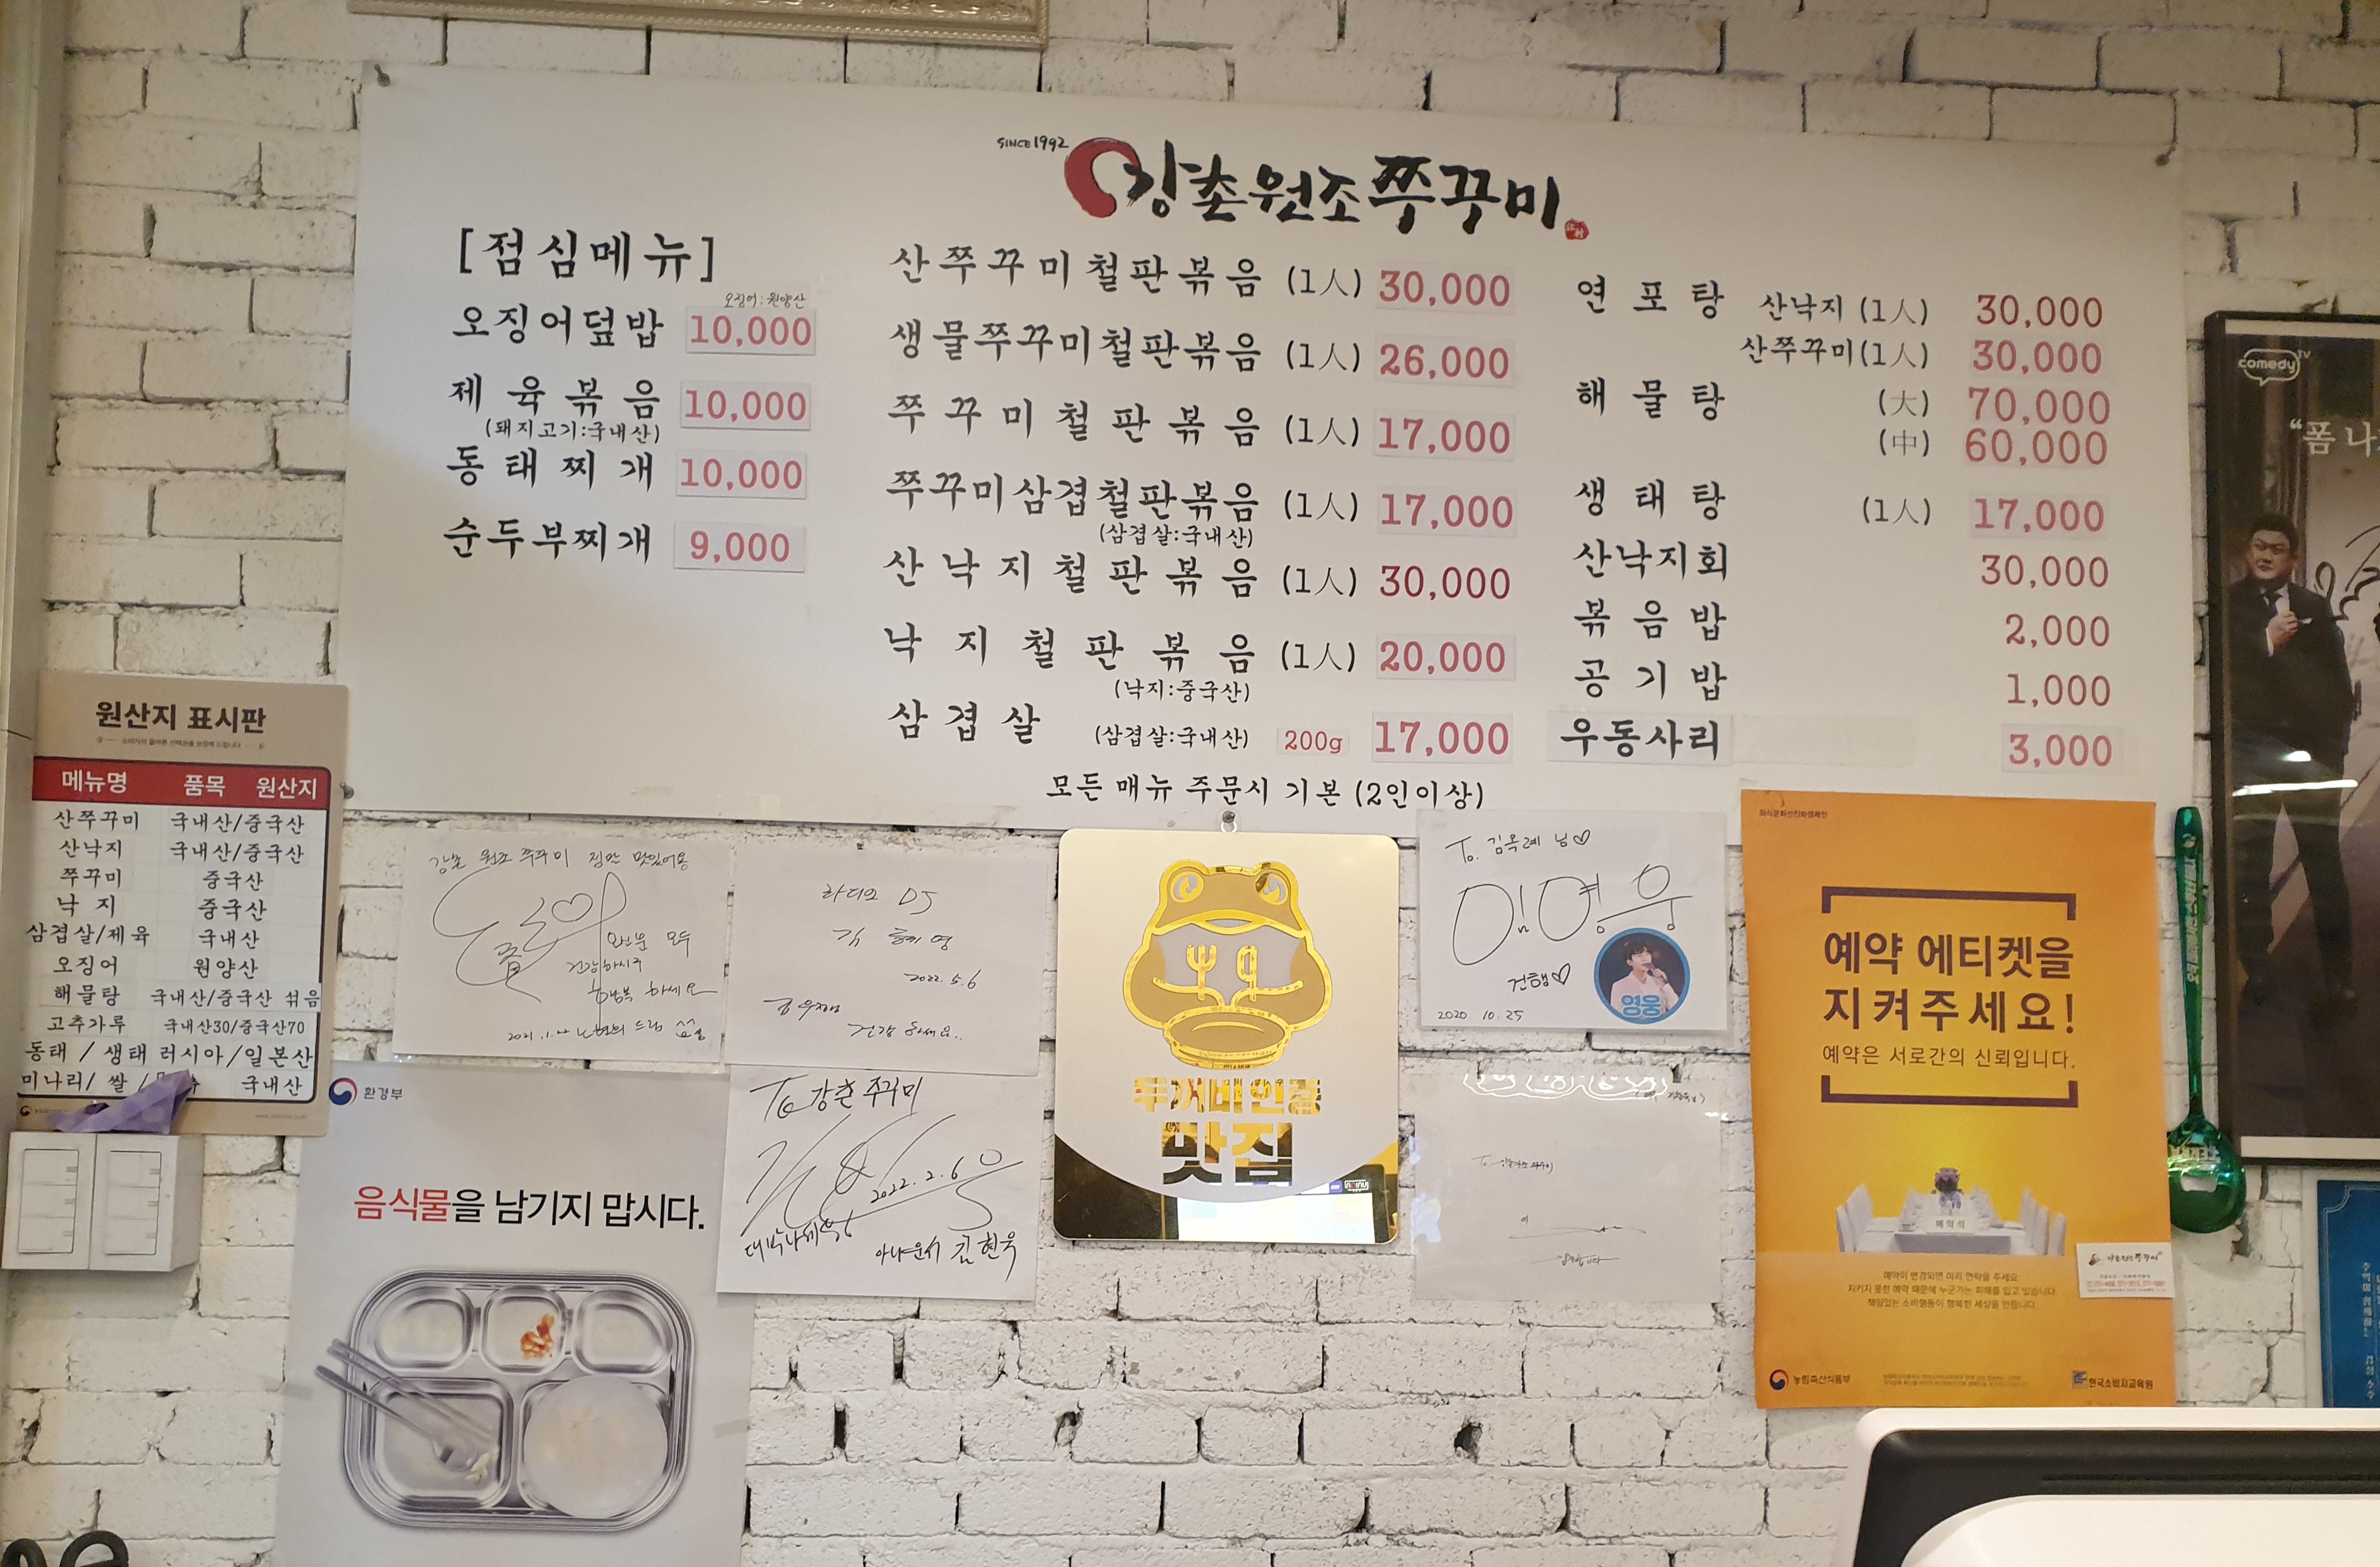 SINCE 1992
강촌원조쭈꾸미
[점심메뉴]
오징어:원양산
오징어덮밥 10,000
제육볶음 10,000
(돼지고기:국내산)
동태찌개 10,000
순두부찌개 9,000
산쭈꾸미철판볶음 (1人) 30,000
생물쭈꾸미철판볶음 (1人) 26,000
쭈꾸미철판볶음 (1人) 17,000
쭈꾸미삼겹철판볶음 (1人) 17,000
(삼겹살:국내산)
산낙지철판볶음 (1人) 30,000
낙지철판볶음 (1人) 20,000
(낙지:중국산)
삼겹살 (삼겹살:국내산) 200g 17,000
연포탕 산낙지 (1人) 30,000
산쭈꾸미(1人) 30,000
해물탕 (大) 70,000
(中) 60,000
생태탕 (1人) 17,000
산낙지회 30,000
볶음밥 2,000
공기밥 1,000
우동사리 3,000
모든 매뉴 주문시 기본 (2인이상)
comedy TV
“폼 나
원산지 표시판
메뉴명 품목 원산지
산쭈꾸미 국내산/중국산
산낙지 국내산/중국산
쭈꾸미 중국산
낙지 중국산
삼겹살/제육 국내산
오징어 원양산
해물탕 국내산/중국산 섞음
고추가루 국내산30/중국산70
동태 / 생태 러시아/일본산
미나리/ 쌀 / 국내산
강촌 원조 쭈꾸미 집은 맛있어용
오신분 모두
건강하시구
행복 하세요
라디오 DJ
2022.5.6
건강하세요..
To 강촌 쭈꾸미
2022.2.6
아나운서 김현욱
두꺼비인증
맛집
To. 김옥례 님♡
임영웅
건행♡
영웅
2020 10.25
환경부
음식물을 남기지 맙시다.
예약 에티켓을
지켜주세요!
예약은 서로간의 신뢰입니다.
예약석
예약이 변경되면 미리 연락을 주세요.
지키지 못한 예약 때문에 누군가는 피해를 입고 있습니다.
책임있는 소비행동이 행복한 세상을 만듭니다.
농림축산식품부
한국소비자교육원